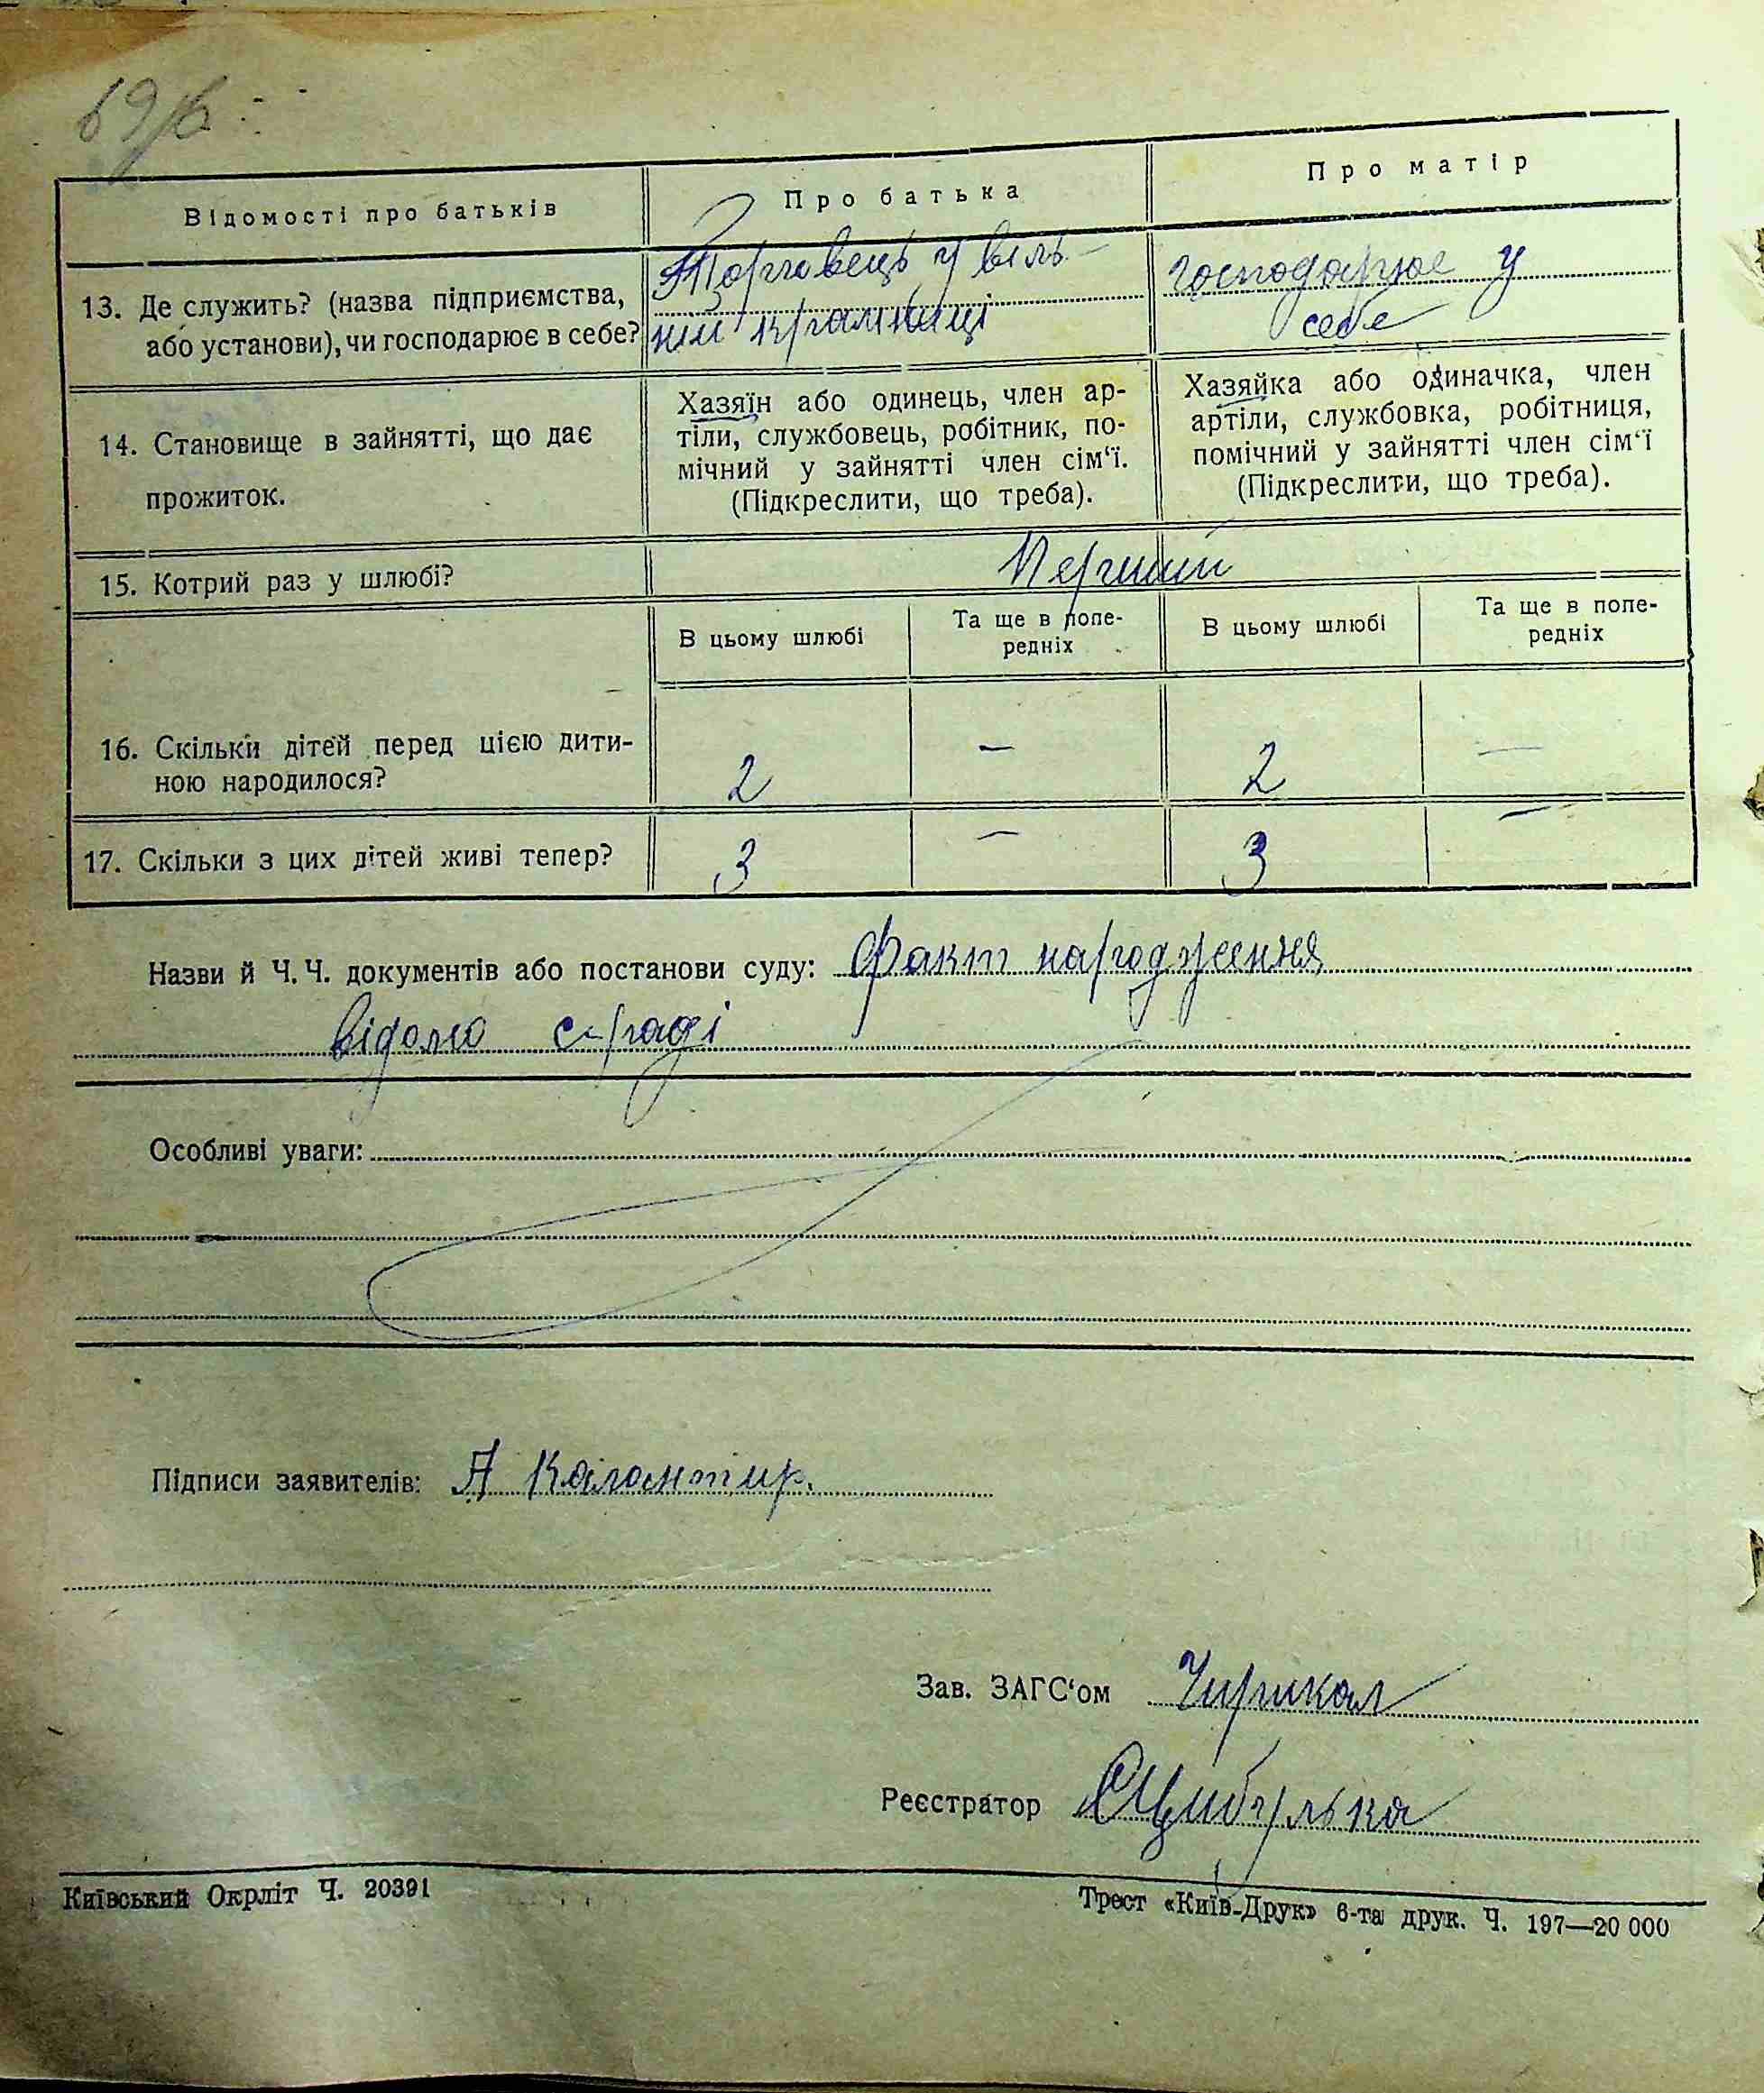 69/б
Відомості про батьків
Про батька
Про матір
13. Де служить? (назва підприємства,
або установи), чи господарює в себе?
Торговець у віль-
ній крамниці
господарює у
себе
14. Становище в зайнятті, що дає
прожиток.
Хазяїн або одинець, член ар-
тіли, службовець, робітник, по-
мічний у зайнятті член сім‘ї.
(Підкреслити, що треба).
Хазяйка або одиначка, член
артіли, службовка, робітниця,
помічний у зайнятті член сім‘ї
(Підкреслити, що треба).
15. Котрий раз у шлюбі?
Перший
В цьому шлюбі
Та ще в попе-
редніх
В цьому шлюбі
Та ще в попе-
редніх
16. Скільки дітей перед цією дити-
ною народилося?
2 — 2 —
17. Скільки з цих дітей живі тепер?
3 — 3 —
Назви й Ч.Ч. документів або постанови суду: Факт народження
відомо сіраді
Особливі уваги:
Підписи заявителів: А Калантир.
Зав. ЗАГС‘ом Чирикал
Реєстратор ЄЦибулька
Київський Окрліт Ч. 20391
Трест «Київ-Друк» 6-та друк. Ч. 197—20 000